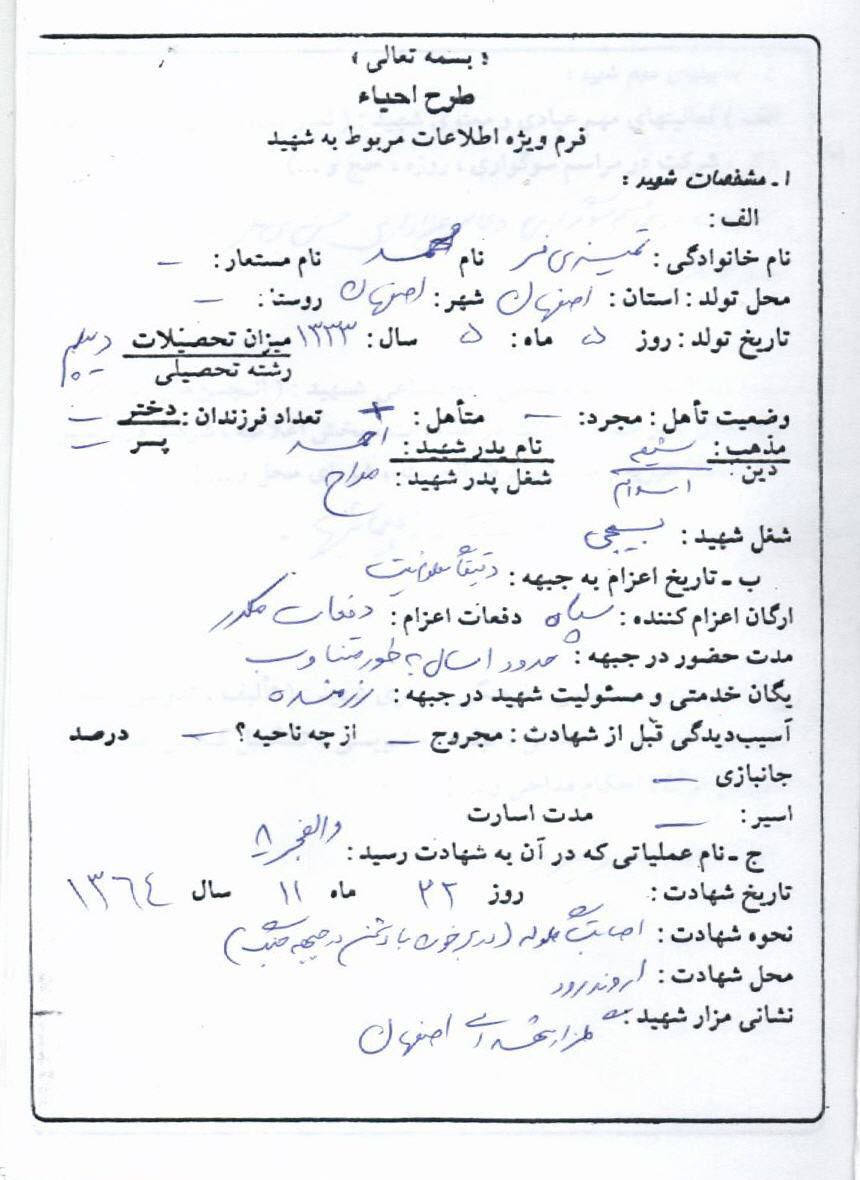 « بسمه تعالی »
طرح احیاء
فرم ویژه اطلاعات مربوط به شهید
۱ـ مشخصات شهید :
الف :
نام خانوادگی : نام محمد نام مستعار : ـ
محل تولد : استان : اصفهان شهر : اصفهان روستا : ـ
تاریخ تولد : روز ۵ ماه : ۵ سال : ۱۳۳۳ میزان تحصیلات دیپلم
رشته تحصیلی
وضعیت تأهل : مجرد : ـ متأهل : + تعداد فرزندان : دختر ـ
مذهب : شیعه نام پدر شهید : احمد پسر ـ
دین : اسلام شغل پدر شهید : مداح
شغل شهید : بسیجی
ب ـ تاریخ اعزام به جبهه : دقیقاً
ارگان اعزام کننده : سپاه دفعات اعزام : دفعات مکرر
مدت حضور در جبهه : حدود ۱ سال به طور متناوب
یگان خدمتی و مسئولیت شهید در جبهه : رزمنده
آسیب‌دیدگی قبل از شهادت : مجروح ـ از چه ناحیه ؟ ـ درصد
جانبازی ـ
اسیر : ـ مدت اسارت
ج ـ نام عملیاتی که در آن به شهادت رسید : والفجر ۸
تاریخ شهادت : روز ۲۲ ماه ۱۱ سال ۱۳٦٤
نحوه شهادت : اصابت گلوله (در برخورد با دشمن در جبهه جنگ)
محل شهادت : اروندرود
نشانی مزار شهید : گلزار شهدای اصفهان